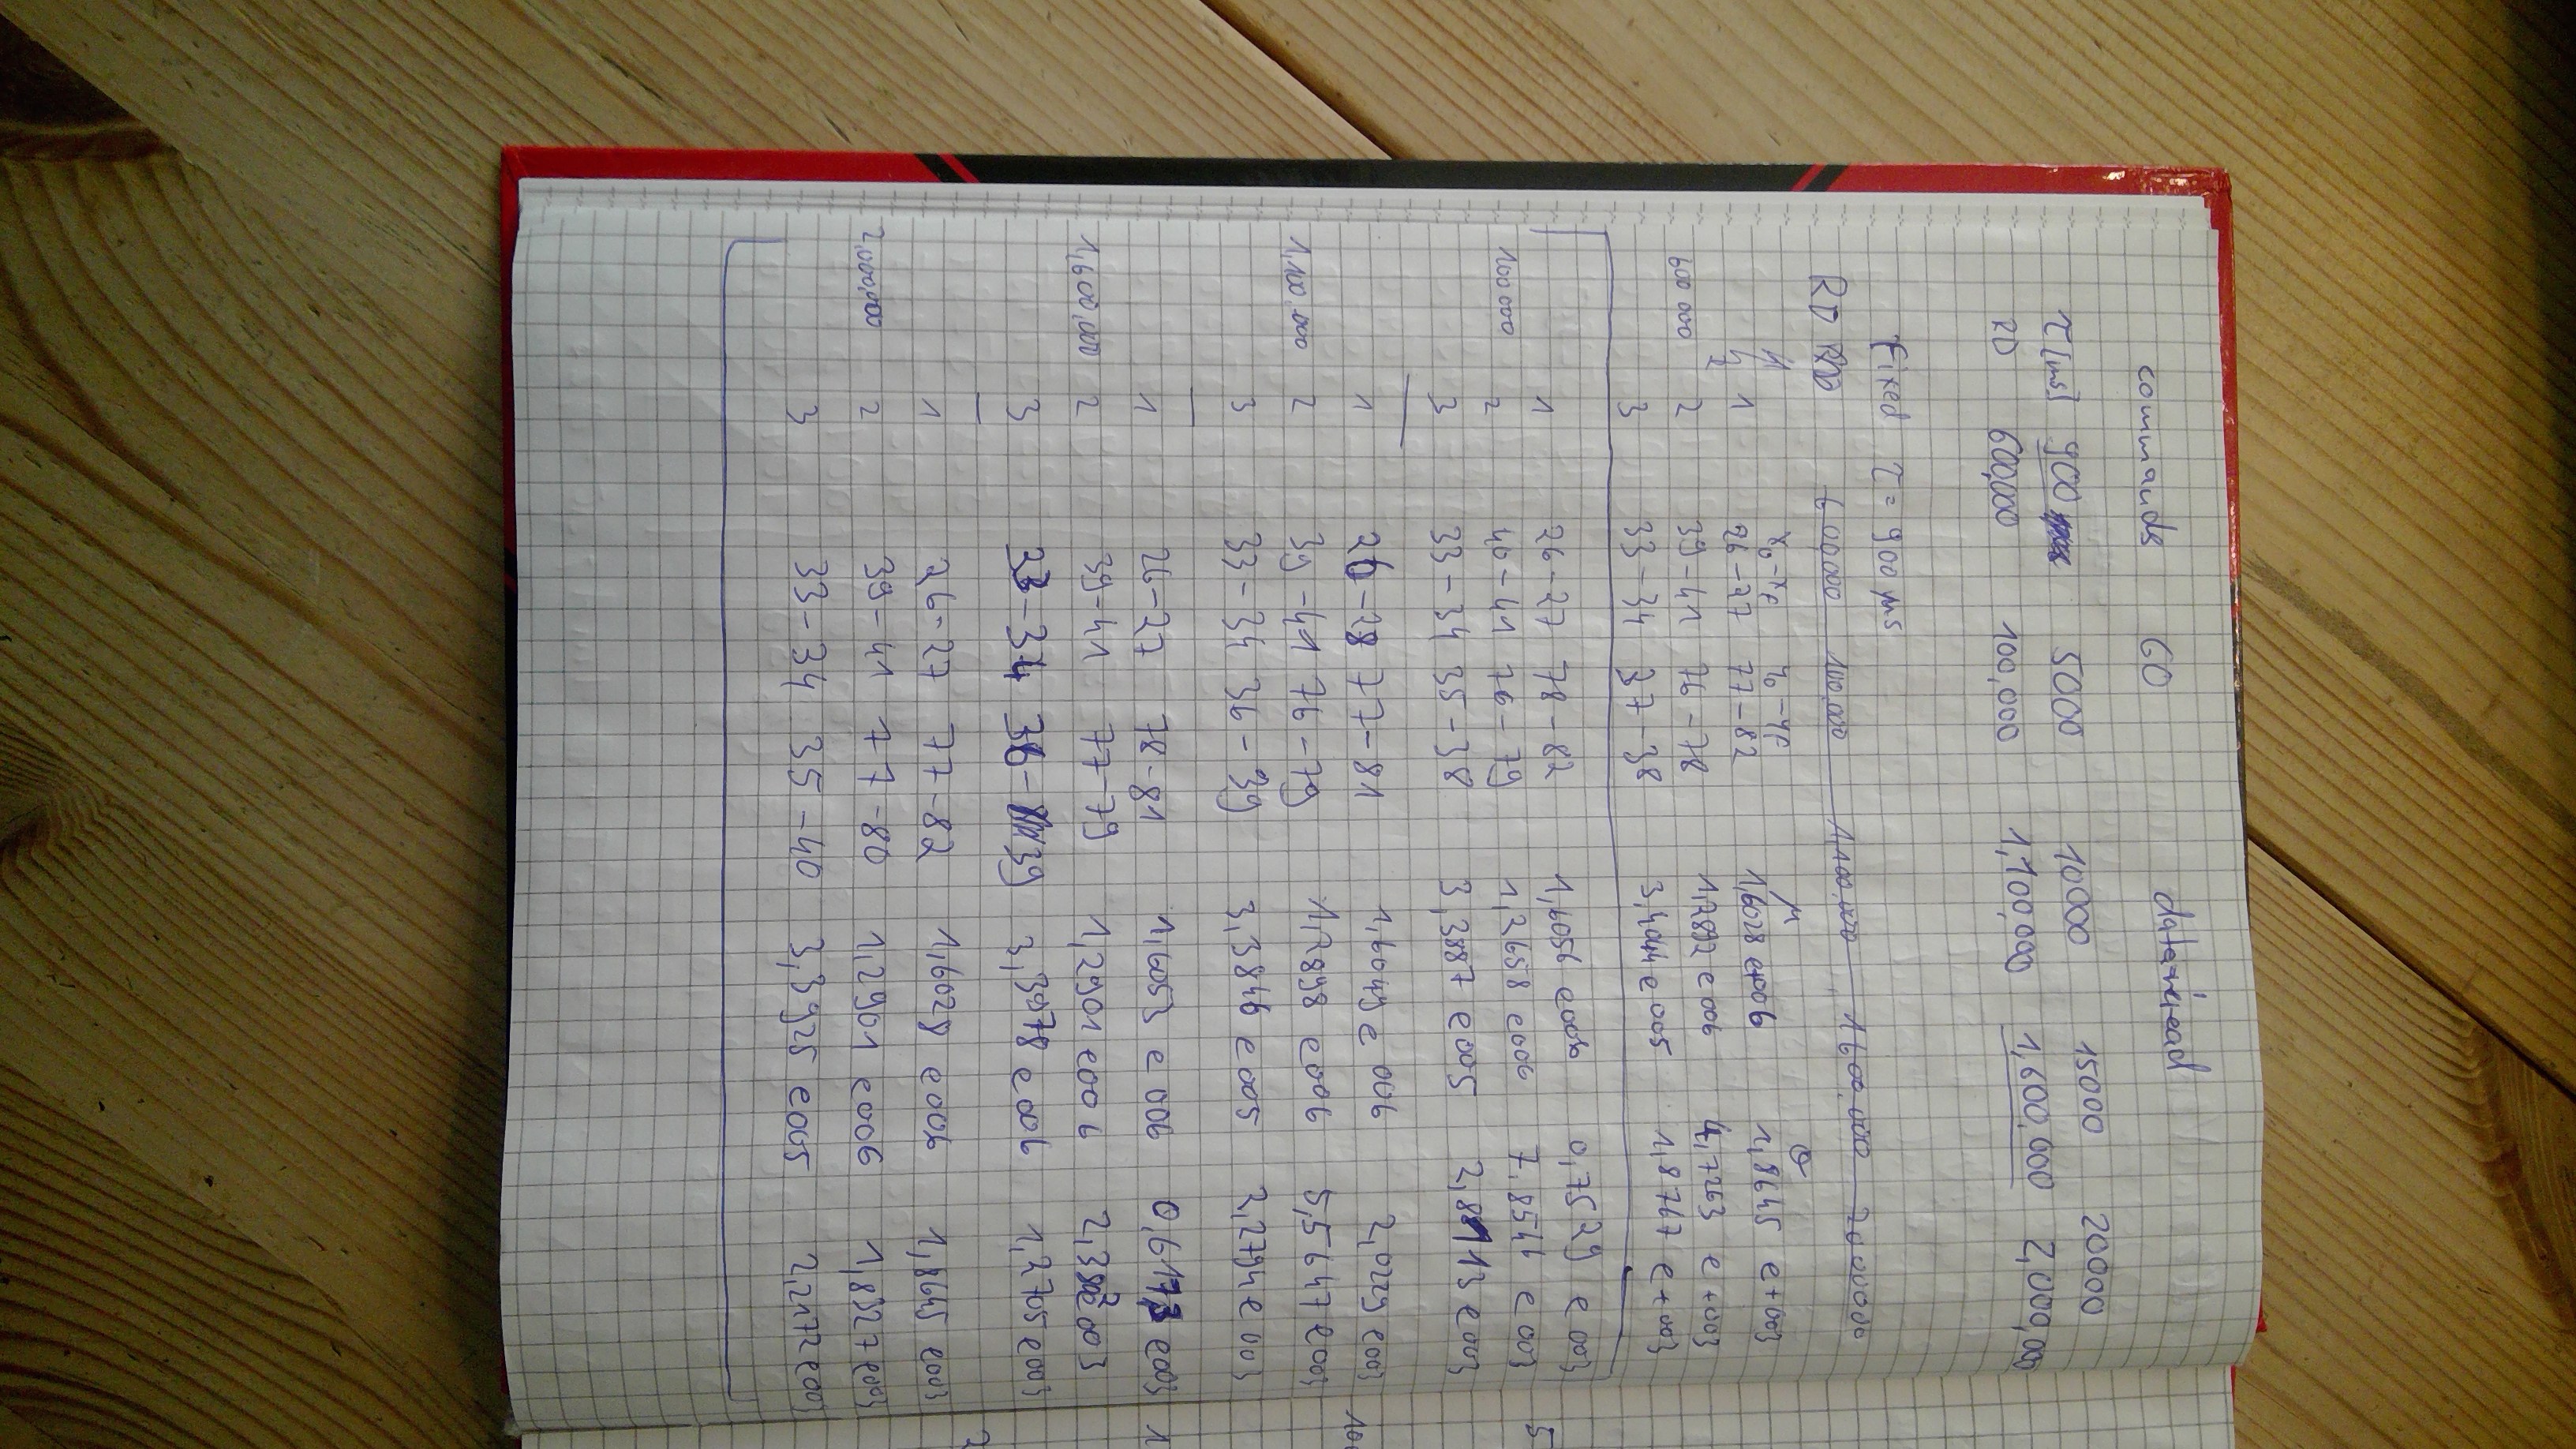 commands 60 datathread
τ[ms] 900 5000 10000 15000 20000
RD 600,000 100,000 1,100,000 1,600,000 2,000,000
Fixed τ = 900 ms
RD 600,000 100,000 1,100,000 1,600,000 2000000
x₀-x_f y₀-y_f μ σ
1 26-27 77-82 1,6028 e+006 1,8645 e+003
600 000 2 39-41 76-78 1,2892 e006 4,7263 e+003
3 33-34 37-38 3,4044 e005 1,8767 e+003
1 26-27 78-82 1,6056 e006 0,7529 e003
100 000 2 40-41 76-79 1,2658 e006 7,8546 e003
3 33-34 35-38 3,3887 e005 2,8113 e003
1 26-28 77-81 1,6049 e006 2,0259 e003
1,100,000 2 39-41 76-79 1,2898 e006 5,5647 e003
3 33-34 36-39 3,3846 e005 2,2794 e003
1 26-27 78-81 1,6053 e006 0,6173 e003
1,600,000 2 39-41 77-79 1,2901 e006 e003
3 33-34 36-39 3,3978 e006 1,2705 e003
1 26-27 77-82 1,6028 e006 1,8645 e003
2,000,000 2 39-41 77-80 1,2901 e006 1,8527 e003
3 33-34 35-40 3,3925 e005 2,2172 e003